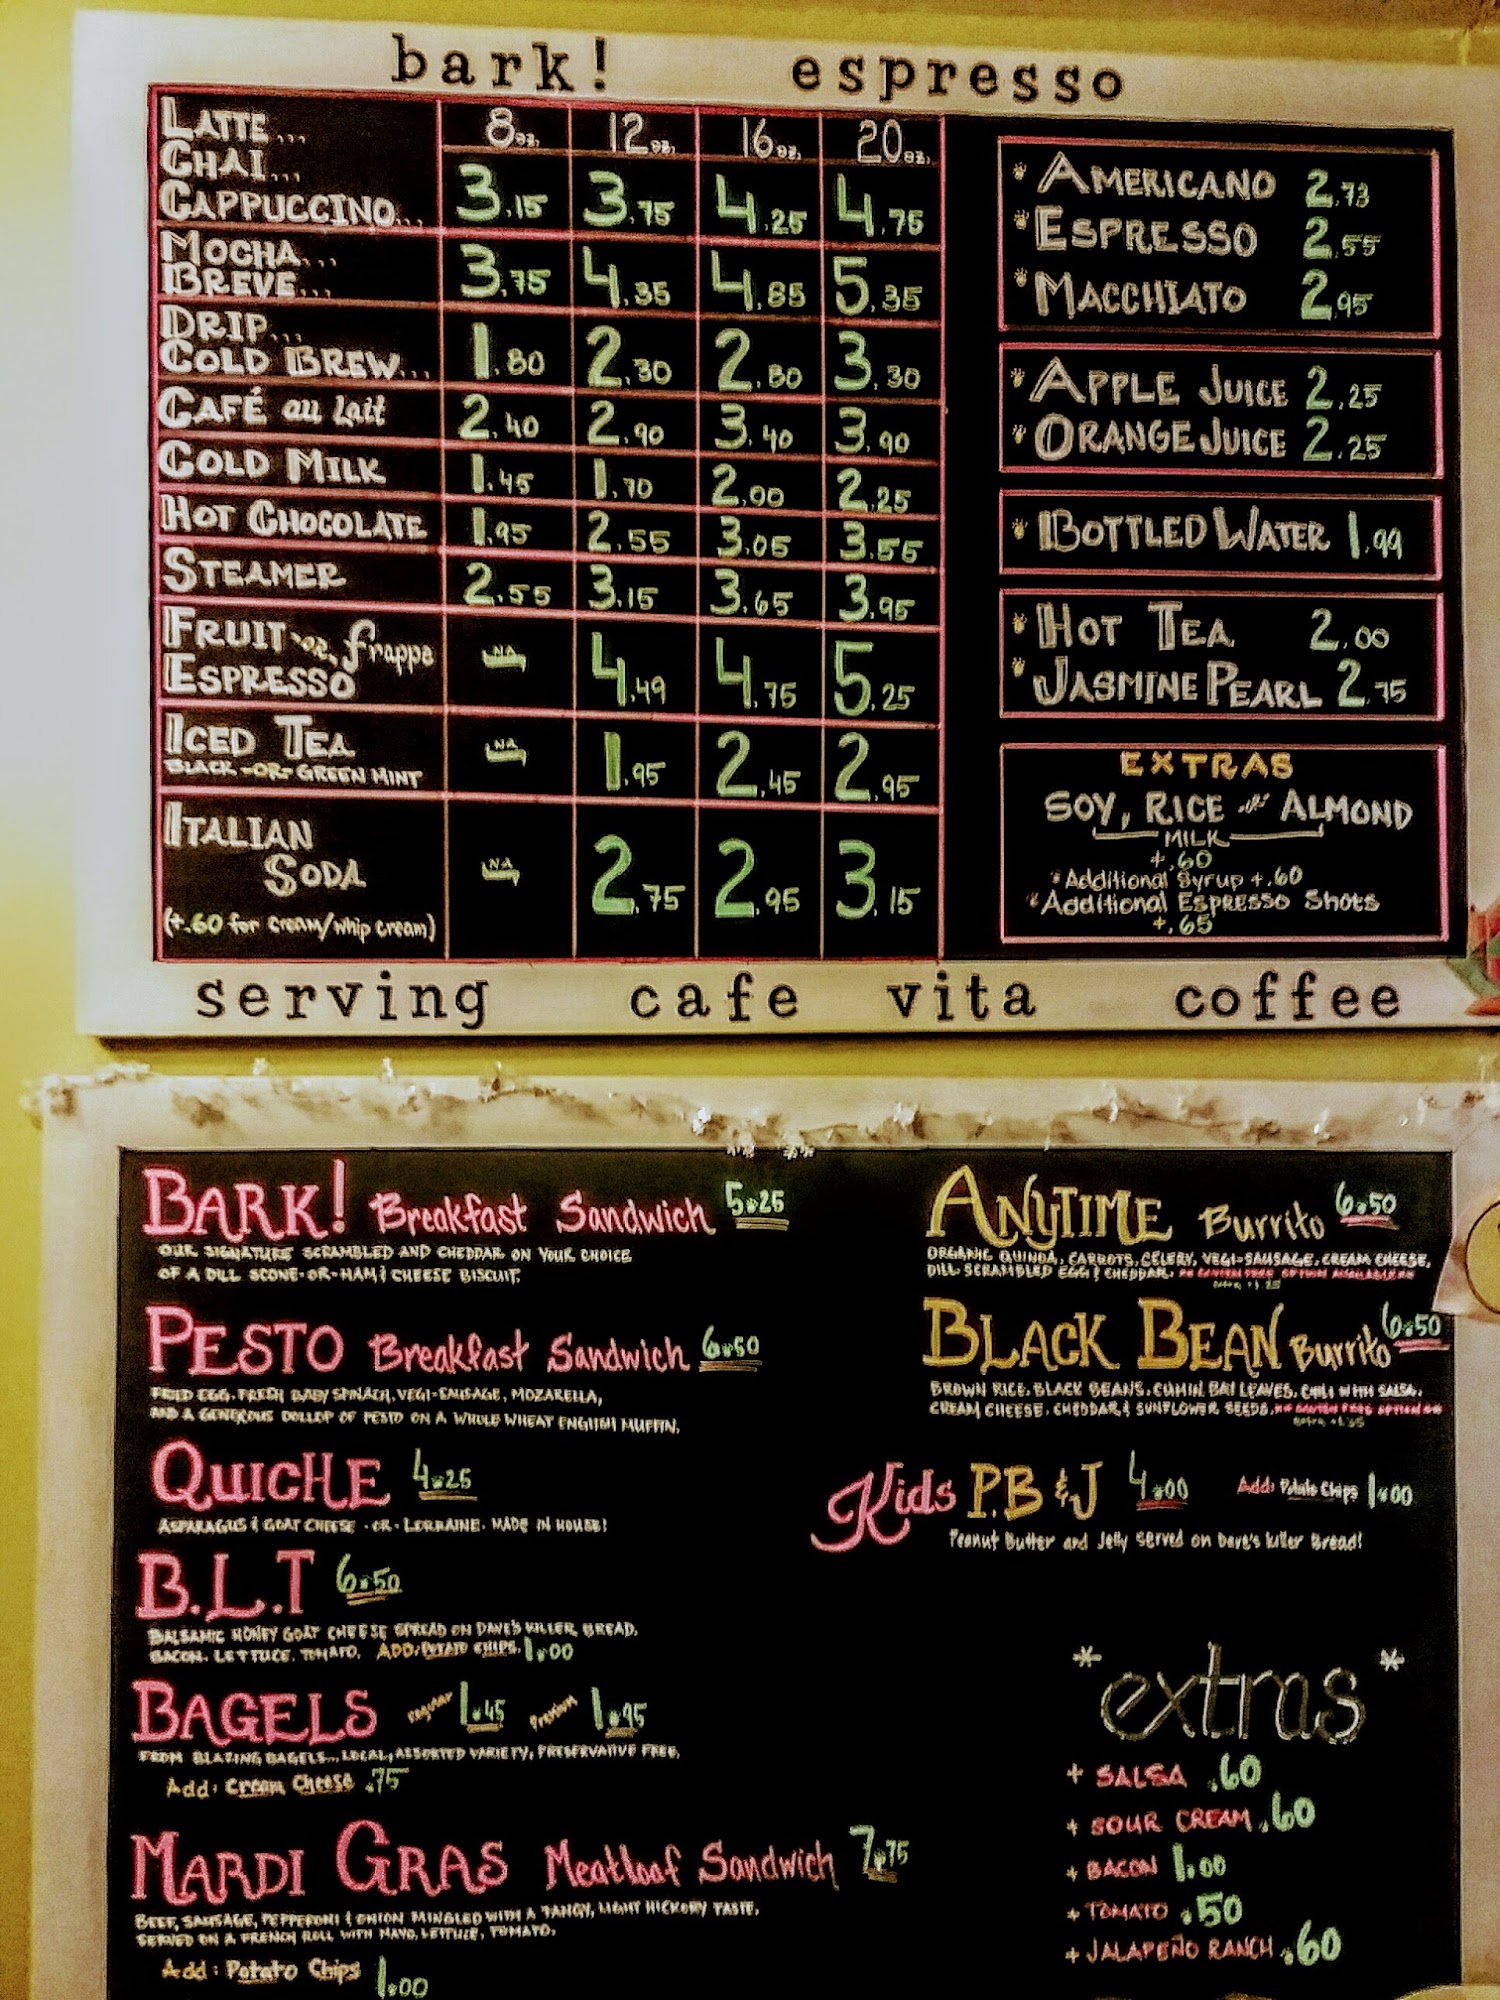 bark! espresso
LATTE... 8oz. 12oz. 16oz. 20oz.
CHAI...
CAPPUCCINO... 3.15 3.75 4.25 4.75
MOCHA...
BREVE... 3.75 4.35 4.85 5.35
DRIP...
COLD BREW... 1.80 2.30 2.80 3.30
CAFÉ au lait 2.40 2.90 3.40 3.90
COLD MILK 1.45 1.70 2.00 2.25
HOT CHOCOLATE 1.95 2.55 3.05 3.55
STEAMER 2.55 3.15 3.65 3.95
FRUIT -OR- frappe
ESPRESSO NA 4.49 4.75 5.25
ICED TEA NA 1.95 2.45 2.95
BLACK -OR- GREEN MINT
ITALIAN
SODA NA 2.75 2.95 3.15
(+.60 for cream/whip cream)
AMERICANO 2.73
ESPRESSO 2.55
MACCHIATO 2.95
APPLE JUICE 2.25
ORANGE JUICE 2.25
BOTTLED WATER 1.99
HOT TEA 2.00
JASMINE PEARL 2.75
EXTRAS
SOY, RICE -or- ALMOND
MILK
+.60
*Additional Syrup +.60
*Additional Espresso Shots
+.65
serving cafe vita coffee
BARK! Breakfast Sandwich 5.25
OUR SIGNATURE SCRAMBLED AND CHEDDAR ON YOUR CHOICE
OF A DILL SCONE-OR-HAM & CHEESE BISCUIT.
PESTO Breakfast Sandwich 6.50
FRIED EGG, FRESH BABY SPINACH, VEGI-SAUSAGE, MOZARELLA,
AND A GENEROUS DOLLOP OF PESTO ON A WHOLE WHEAT ENGLISH MUFFIN.
QUICHE 4.25
ASPARAGUS & GOAT CHEESE -OR- LORRAINE. MADE IN HOUSE!
B.L.T 6.50
BALSAMIC HONEY GOAT CHEESE SPREAD ON DAVE'S KILLER BREAD,
BACON, LETTUCE, TOMATO. ADD: POTATO CHIPS. 1.00
BAGELS Regular 1.45 Premium 1.95
FROM BLAZING BAGELS... LOCAL, ASSORTED VARIETY, PRESERVATIVE FREE.
Add: Cream Cheese .75
MARDI GRAS Meatloaf Sandwich 7.75
BEEF, SAUSAGE, PEPPERONI & ONION MINGLED WITH A TANGY, LIGHT HICKORY TASTE.
SERVED ON A FRENCH ROLL WITH MAYO, LETTUCE, TOMATO.
Add: Potato Chips 1.00
ANYTIME Burrito 6.50
ORGANIC QUINOA, CARROTS, CELERY, VEGI-SAUSAGE, CREAM CHEESE,
DILL SCRAMBLED EGG & CHEDDAR. GLUTEN FREE OPTION AVAILABLE
BLACK BEAN Burrito 6.50
BROWN RICE, BLACK BEANS, CUMIN, BAY LEAVES, CHILI WITH SALSA,
CREAM CHEESE, CHEDDAR & SUNFLOWER SEEDS. GLUTEN FREE OPTION
Kids P.B & J 4.00 Add: Potato Chips 1.00
Peanut Butter and Jelly served on Dave's killer Bread!
*extras*
+ SALSA .60
+ SOUR CREAM .60
+ BACON 1.00
+ TOMATO .50
+ JALAPEÑO RANCH .60